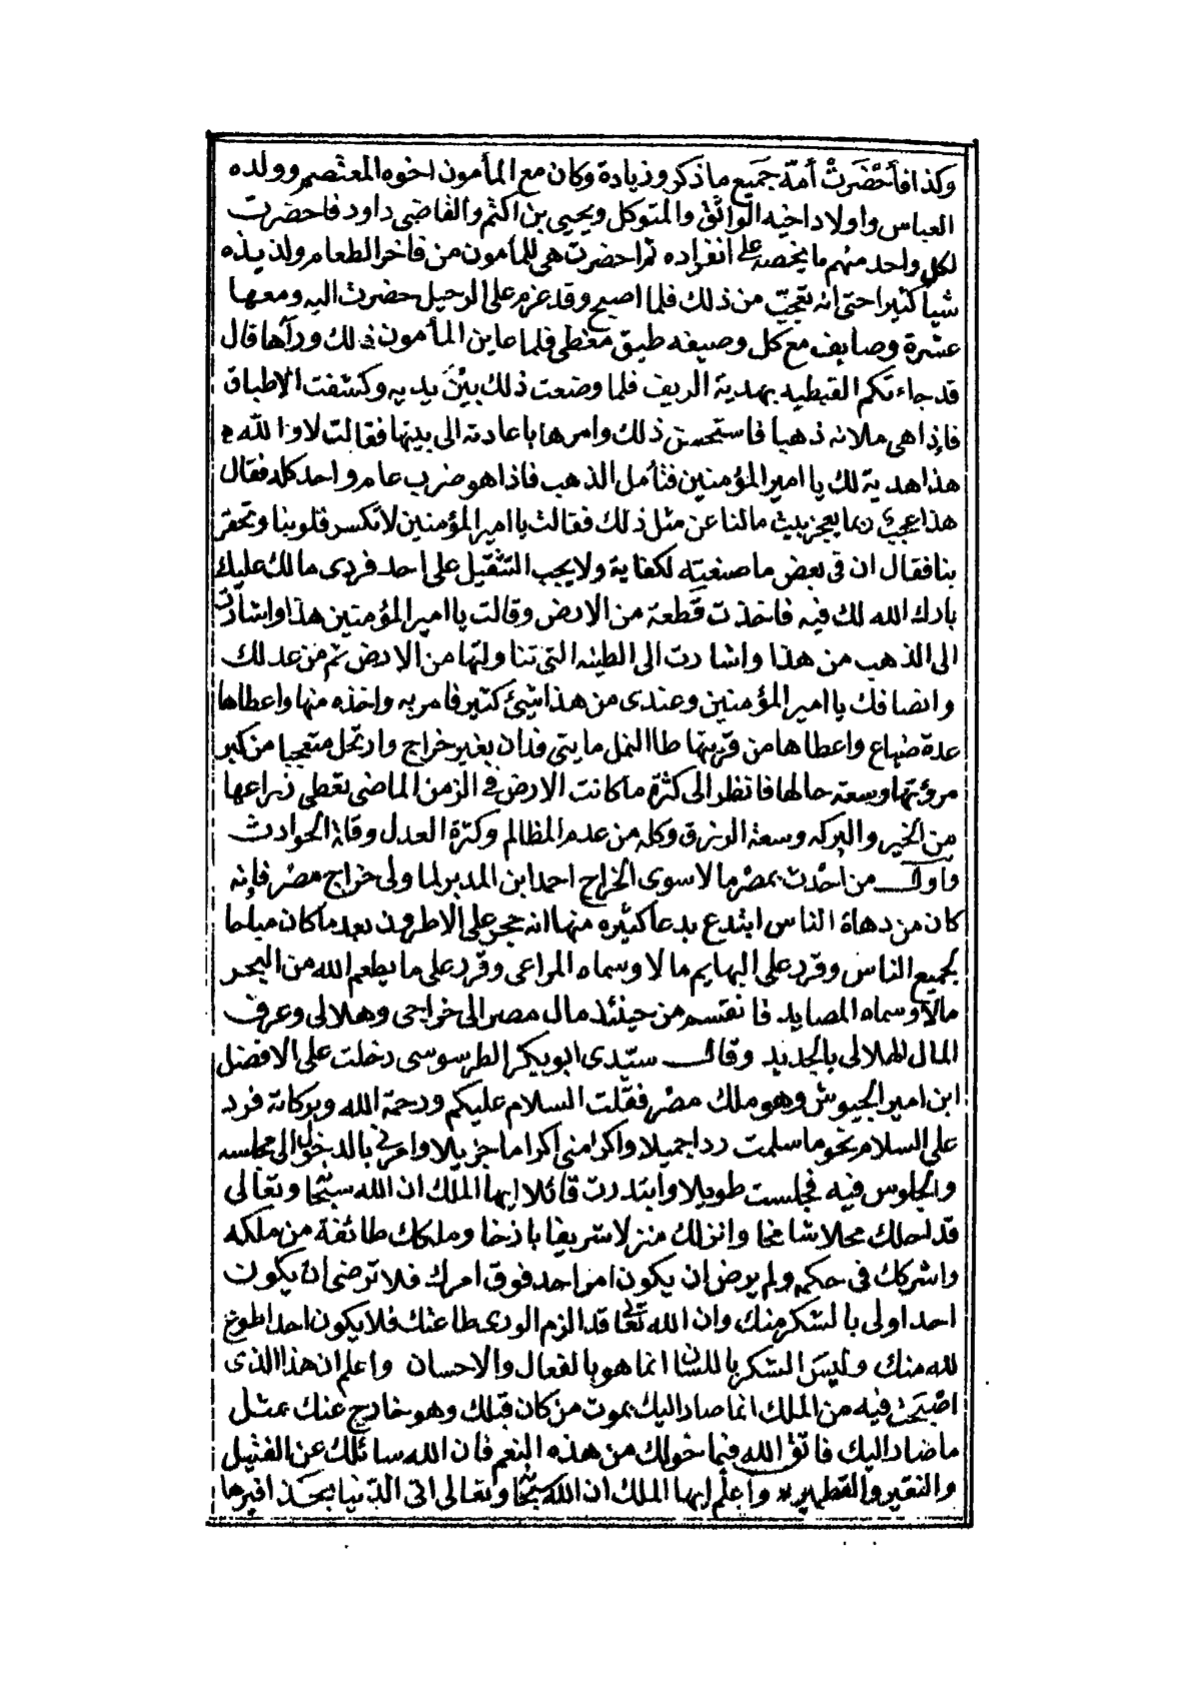 وكذا فأحْضَرتْ أمة جَميع ما ذكر وزيادة وكان مع المأمون اخوه المعتصم وولده
العباس واولاد اخيه الواثق والمتوكل ويحيى بن اكثم والقاضى داود فاحضرت
لكل واحد منهم ما يخصه على انفراده ثم احضرت هى للمأمون من فاخر الطعام ولذيذه
شيأ كثيرا حتى انه تعجب من ذلك فلما اصبح وقد عزم على الرحيل حضرت اليه ومعها
عشرة وصايف مع كل وصيفه طبق مغطى فلما عاين المأمون ذلك ورآها قال
قد جاءتكم القبطيه بهدية الريف فلما وضعت ذلك بين يديه وكشفت الاطباق
فإذا هى ملانه ذهبا فاستحسن ذلك وامرها باعادته الى بيتها فقالت لا والله
هذا هدية لك يا امير المؤمنين فتأمل الذهب فاذا هو ضرب عام واحد كله فقال
هذا عجيب ربما يعجز بيت مالنا عن مثل ذلك فقالت يا امير المؤمنين لا تكسر قلوبنا وتحقر
بنا فقال ان فى بعض ما صنعتيه لكفاية ولا يجب التثقيل على احد فردى مالك عليك
بارك الله لك فيه فاخذت قطعة من الارض وقالت يا امير المؤمنين هذا واشارت
الى الذهب من هذا واشارت الى الطينه التى تناولتها من الارض ثم من عدلك
وانصافك يا امير المؤمنين وعندى من هذا شيئ كثير فامر به واخذه منها واعطاها
عدة ضياع واعطاها من قريتها طا النمل مايتى فدان بغير خراج وارتحل متعجبا من كبر
مروتها وسعة حالها فانظر الى كثرة ما كانت الارض فى الزمن الماضى تعطى زراعها
من الخير والبركه وسعة الرزق وكله من عدم المظالم وكثرة العدل وقلة الحوادث
وأول من احْدث بمصر مالا سوى الخراج احمد ابن المدبر لما ولى خراج مصر فإنه
كان من دهاة الناس ابتدع بدعا كثيره منها انه حجر على الاطرون بعد ما كان مباحا
لجميع الناس وقرر على البهايم مالا وسماه المراعى وقرر على ما يطعم الله من البحر
مالا وسماه المصايد فانقسم من حينئذ مال مصر الى خراجى وهلالى وعرف
المال الهلالى بالجديد وقال سيّدى ابو بكر الطرسوسى دخلت على الافضل
ابن امير الجيوش وهو ملك مصر فقلت السلام عليكم ورحمة الله وبركاته فرد
على السلام نحو ما سلمت ردا جميلا واكرامنى اكراما جزيلا وامرنى بالدخول الى مجلسه
والجلوس فيه فجلست طويلا وابتدرت قائلا ايها الملك ان الله سبحا وتعالى
قد احلك محلا شامخا وانزلك منزلا شريفا باذخا وملكك طائفة من ملكه
واشركك فى حكمه ولم يرض ان يكون امر احد فوق امرك فلا ترضى ان يكون
احد اولى بالشكر منك وان الله تعا قد الزم الورى طاعتك فلا يكون احد اطوع
لله منك وليسَ الشكر باللسان انما هو بالفعال والاحسان واعلم ان هذا الذى
اصْبَحت فيه من الملك انما صار اليك بموت من كان قبلك وهو خارج عنك بمثل
ما صار اليك فاتق الله فيما خولك من هذه النعم فان الله سائلك عن الفتيل
والنقير والقطمير * واعلم ايها الملك ان الله سبحا وتعالى اتى الدّنيا بحذافيرها